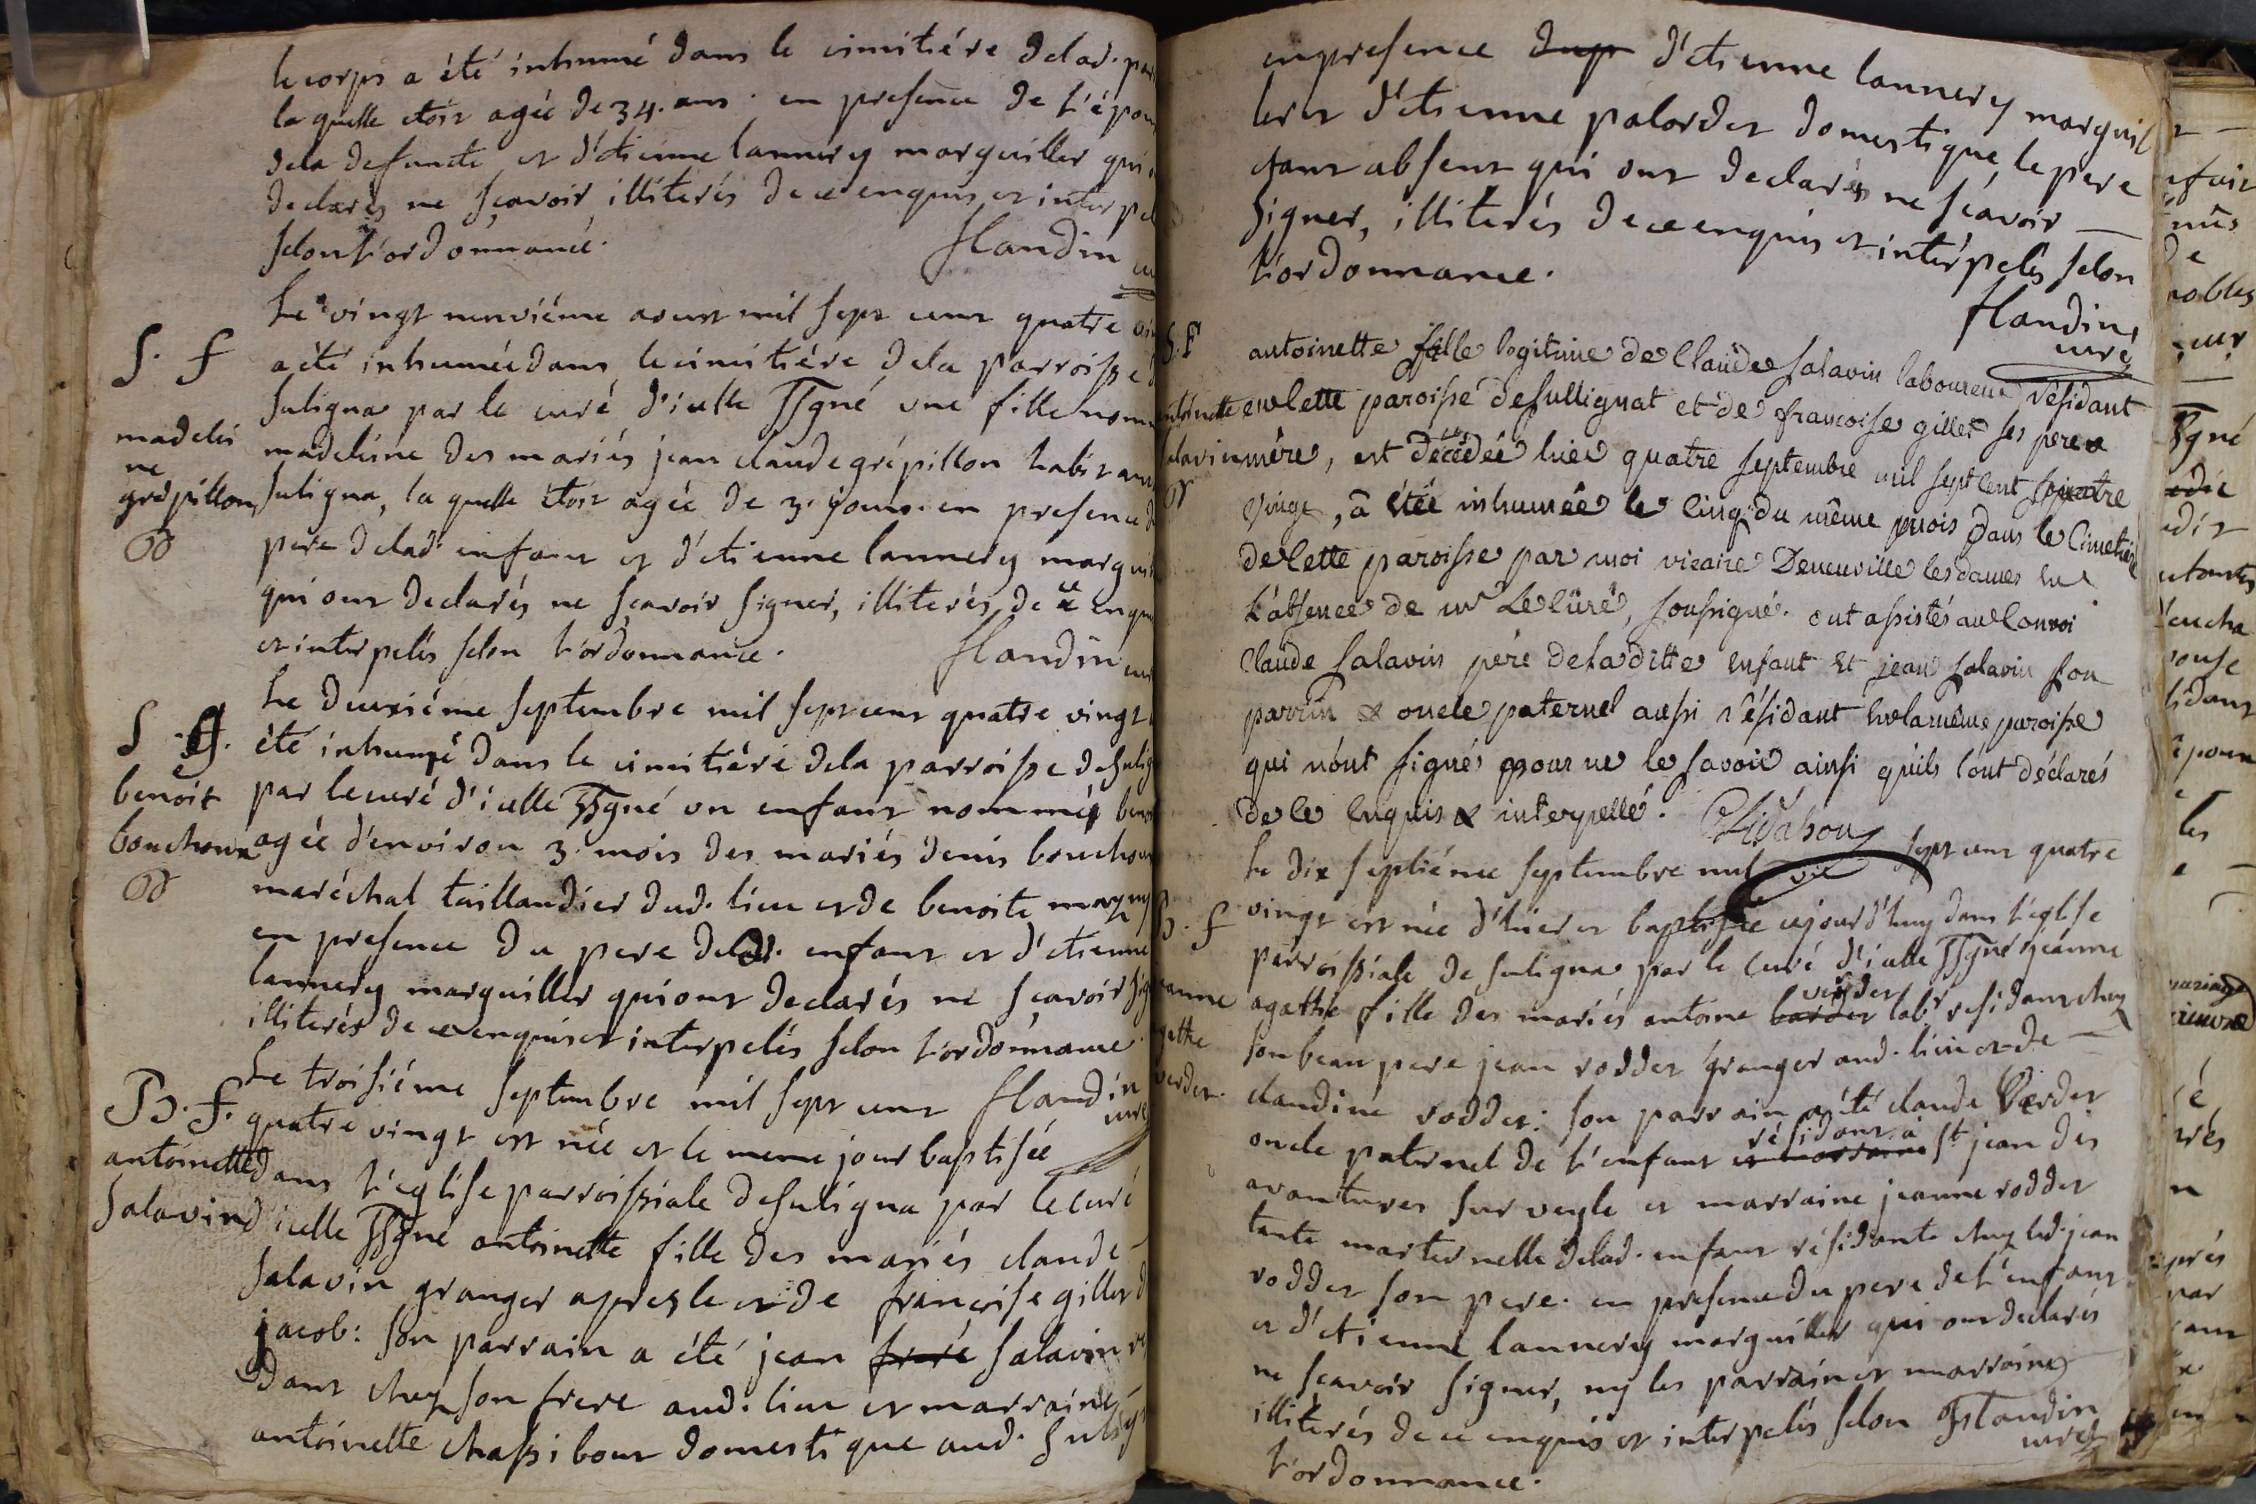 le corps a été inhumé dans le cimitiére delad. par
la quelle étoit agée de 34. ans. en presence de l'épou
dela defuncte et d'étienne lannery marguiller qui
declarés ne sçavoir illiterés de ce enquis et interpel
selon l'ordonnance.
flandin cu
Le vingt neuviéme aoust mil sept cent quatre vin
S. f
a été inhumée dans le cimitiére dela parroisse d
suligna par le curé d'icelle ssgné une fille nom
madelei
ne
grépillon
madeleine des mariés jean claude grépillon habitant
suligna, la quelle étoit agée de 3. jours. en presence d
pere delad. enfant et d'étienne lannery margui
qui ont declarés ne sçavoir signer, illiterés, de ce enqu
et interpelés selon l'ordonnance.
flandin cur
Le deuxiéme septembre mil sept cent quatre vingt
S. g.
été inhumé dans le cimitiére dela parroisse desulig
benoit
bouchoux
par le curé d'icelle ssgné un enfant nommé beno
agée d'environ 3. mois des mariés denis bouchoux
maréchal taillandier dud. lieu et de benoite
en presence du pere delad. enfant et d'étienne
lannery marguiller qui ont declarés ne sçavoir sig
illiterés de ce enquis et interpelés selon l'ordonnance
Le troisiéme septembre mil sept cent
flandin
curé
B. f.
quatre vingt est née et le meme jour baptisée
antoinette
salavin
dans l'eglise parroissiale desuligna par le curé
d'icelle ssgné antoinette fille des mariés claude
salavin granger apresle et de françoise gillet d
jacob: son parrain a été jean frere salavin re
dant chez son frere aud. lieu et marraine
antoinette chassibout domestique aud.
en presence d'etienne lannery marguil
ler et d'étienne palordet domestique, le pere
étant absent qui ont declarés ne sçavoir
signer, illiterés de ce enquis et interpelés selon
l'ordonnance.
flandin
curé
S. F
antoinette fille legitime de Claude salavin laboureur résidant
en cette paroisse desullignat et de francoise gillet ses pere &
mère, est décédée hier quatre septembre mil sept cent quatre
vingt, a été inhumée le cinq du même mois dans le Cimetière
de cette paroisse par moi vicaire Deneuville les dames en
l'absence de mr Le Curé, soussigné. ont assistés au Convoi
Claude salavin père de la ditte enfant et jean salavin son
parrin & oncle paternel aussi résidant en la même paroisse
qui n'ont signés pour ne le savoir ainsi qu'ils l'ont déclarés
de ce enquis & interpellé.
vic
Le dix septiéme septembre mil sept cent quatre
B. f
vingt est née d'hier et baptisée ejourd'huy dans l'eglise
parroissiale de suligna par le curé d'icelle ssgné jeanne
agathe fille des mariés antoine verdet labr residant chez
son beau pere jean roddet granger aud. lieu et de
claudine roddet: son parrain a été claude Verdet
oncle paternel de l'enfant résidant a St jean des
avantures sur veyle et marraine jeanne roddet
tante marternelle delad. enfant résidante chez led. jean
roddet son pere. en presence du pere de l'enfant
et d'étienne lannery marguiller qui ont declarés
ne sçavoir signer, ny les parrain et marraine
illiterés de ce enquis et interpelés selon
l'ordonnance.
flandin
curé